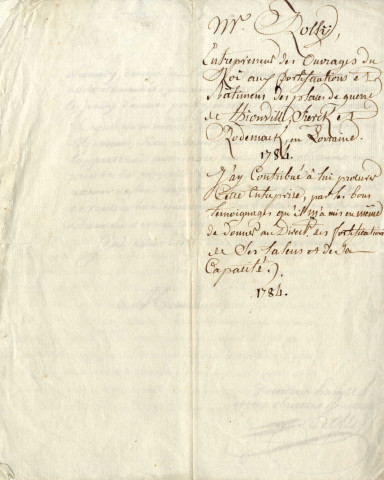 Mr. Rolly,
Entrepreneur des Ouvrages du
Roi aux fortifications et
Batimens des places de guerre
de Thionville, Sierck et
Rodemack, en Lorraine.
1784.
J'ay Contribué à lui procurer
Cette Entreprise, par les bons
témoignages qu'il m'a mis en même
de donner au Direct. des fortifications
de Ses talens et de Sa
Capacité.
1784.